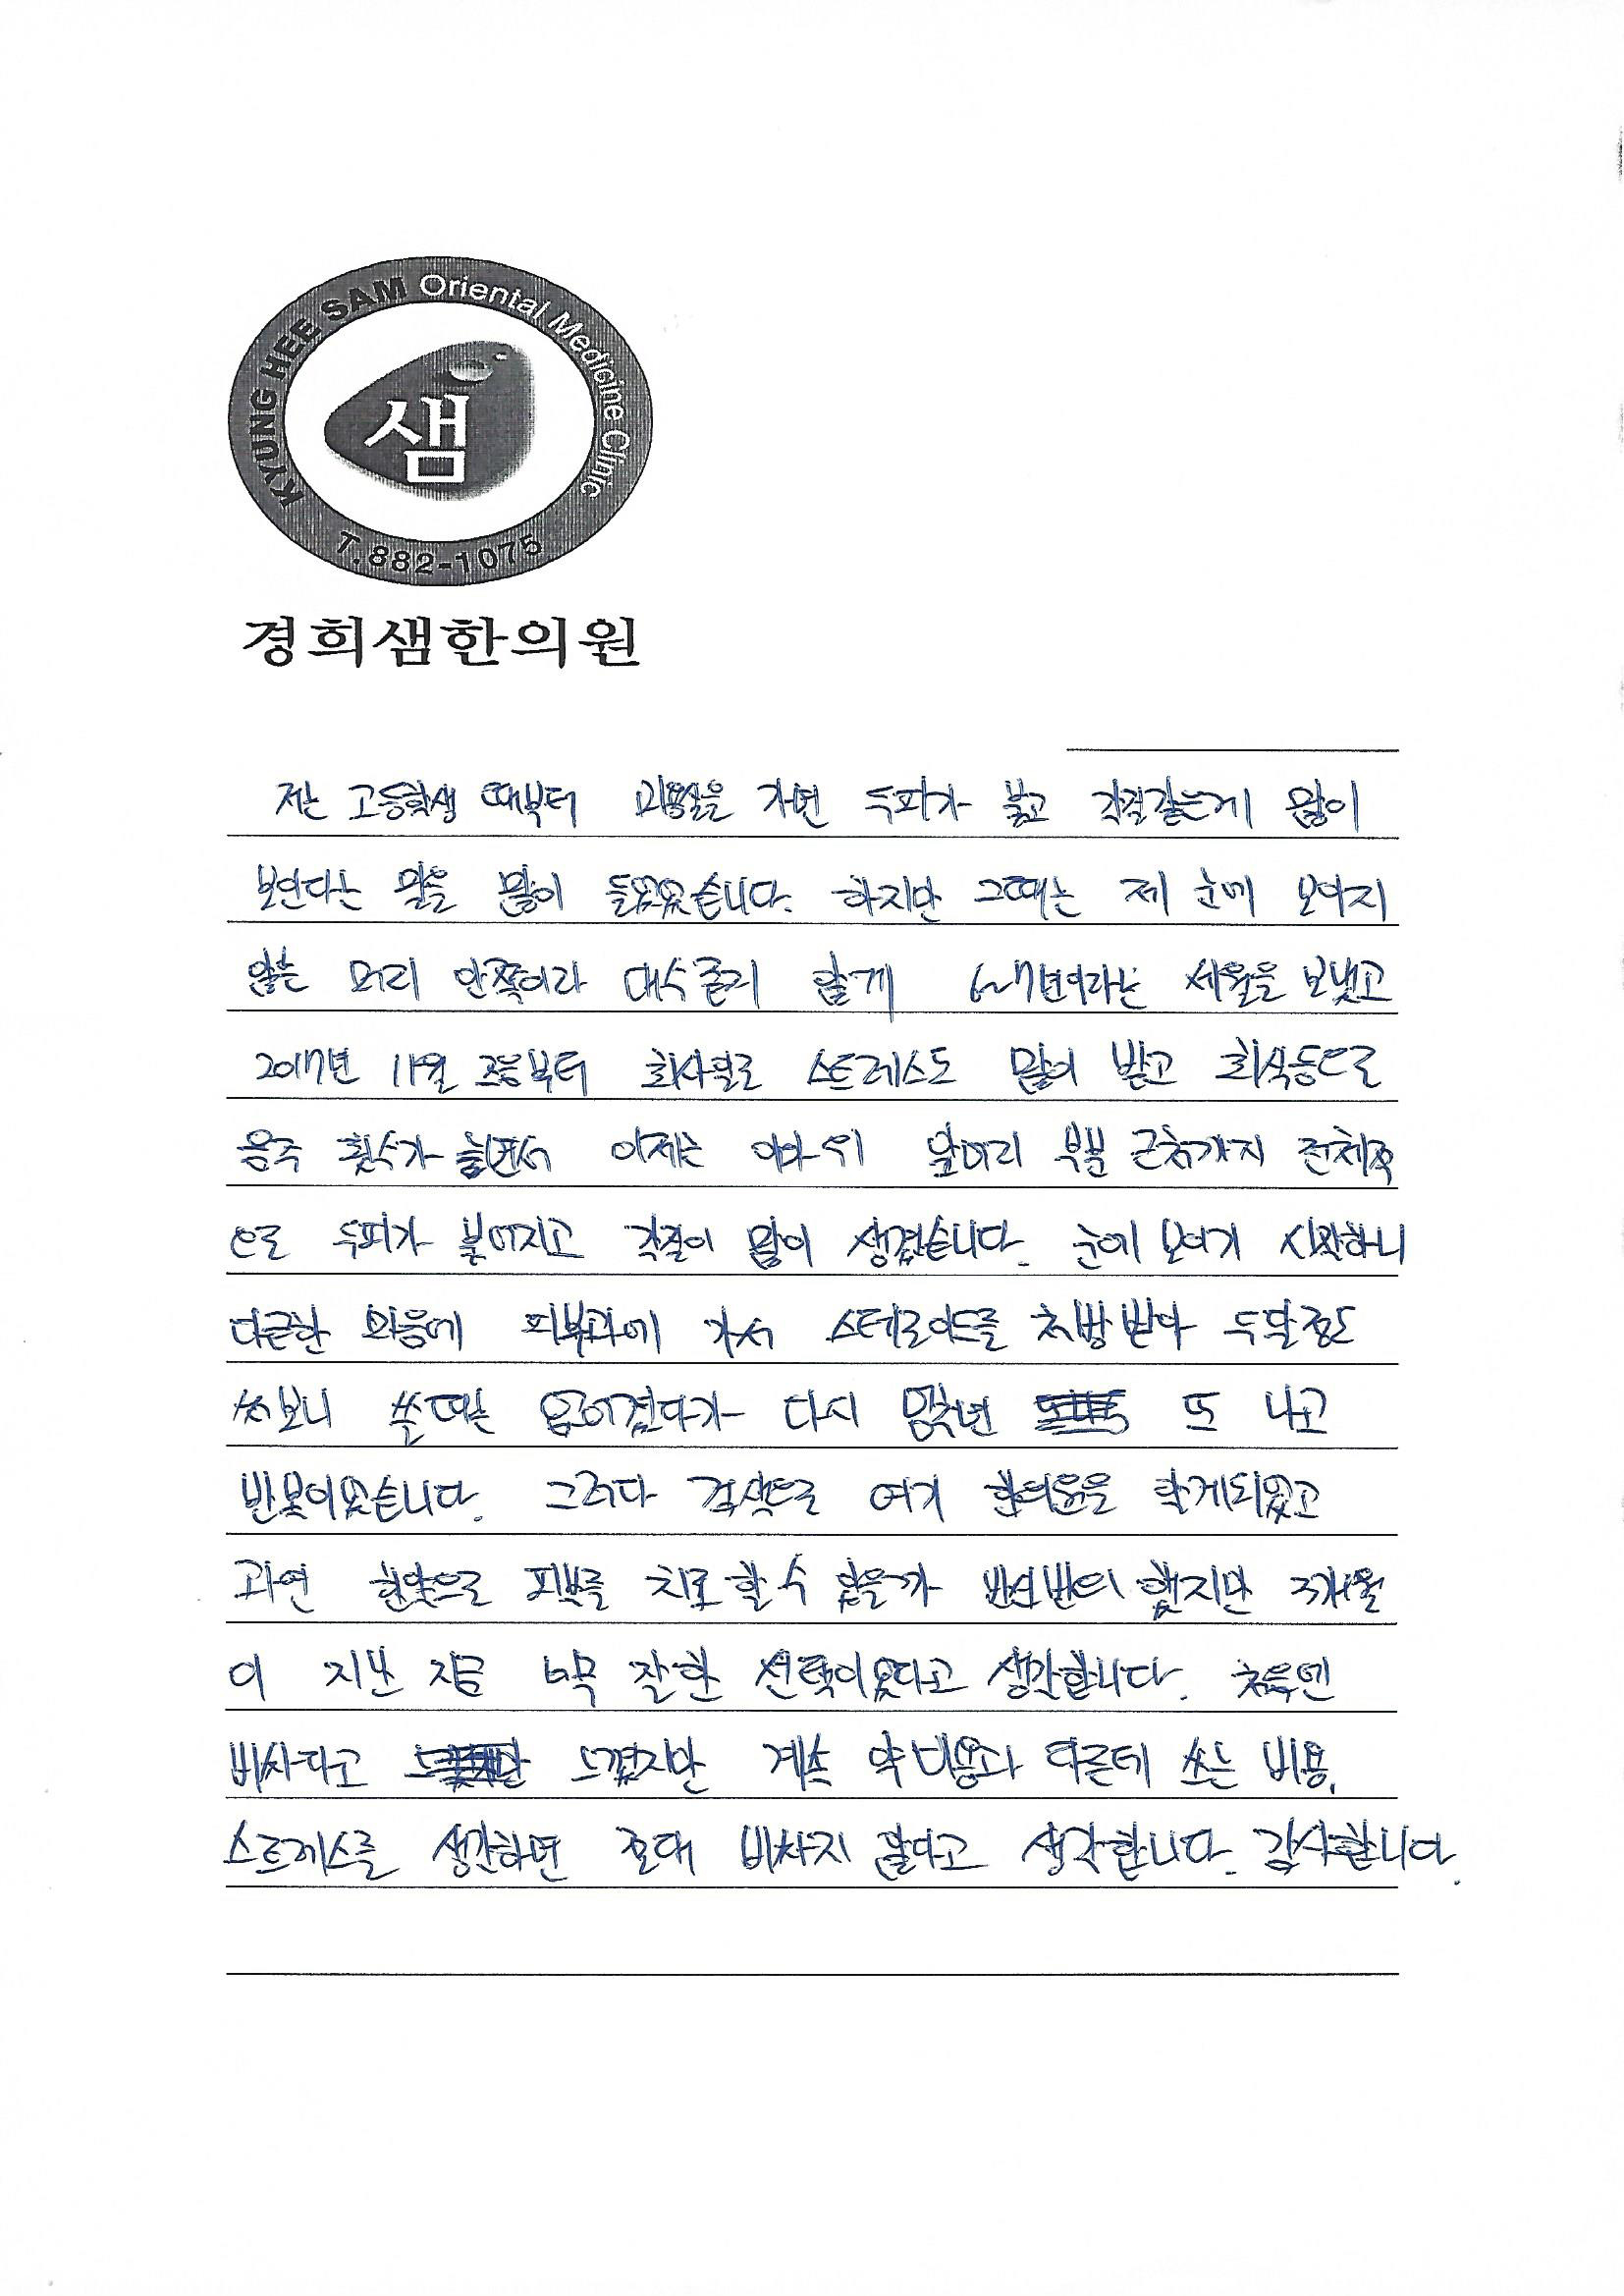 KYUNG HEE SAM Oriental Medicine Clinic
샘
T.882-1075
경희샘한의원
저는 고등학생 때부터 미용실을 가면 두피가 붉고 각질같은게 많이
보인다는 말을 많이 들었었습니다. 하지만 그때는 제 눈에 보이지
않는 머리 안쪽이라 대수롭지 않게 6~7년이라는 세월을 보냈고
2017년 11월 중순부터 회사일로 스트레스도 많이 받고 회식등으로
음주 횟수가 늘면서 이제는 이마 위 앞머리 부분 근처까지 전체적
으로 두피가 붉어지고 각질이 많이 생겼습니다. 눈에 보이기 시작하니
다급한 마음에 피부과에 가서 스테로이드를 처방받아 두달정도
써보니 쓸때만 없어졌다가 다시 멈추면 또 나고
반복이었습니다. 그러다 검색으로 여기 한의원을 알게되었고
과연 한약으로 피부를 치료할 수 있을까 반신반의 했지만 3개월
이 지난 지금 너무 잘한 선택이었다고 생각합니다. 처음엔
비싸다고 느꼈지만 계속 약 비용과 다른데 쓰는 비용,
스트레스를 생각하면 절대 비싸지 않다고 생각합니다. 감사합니다.